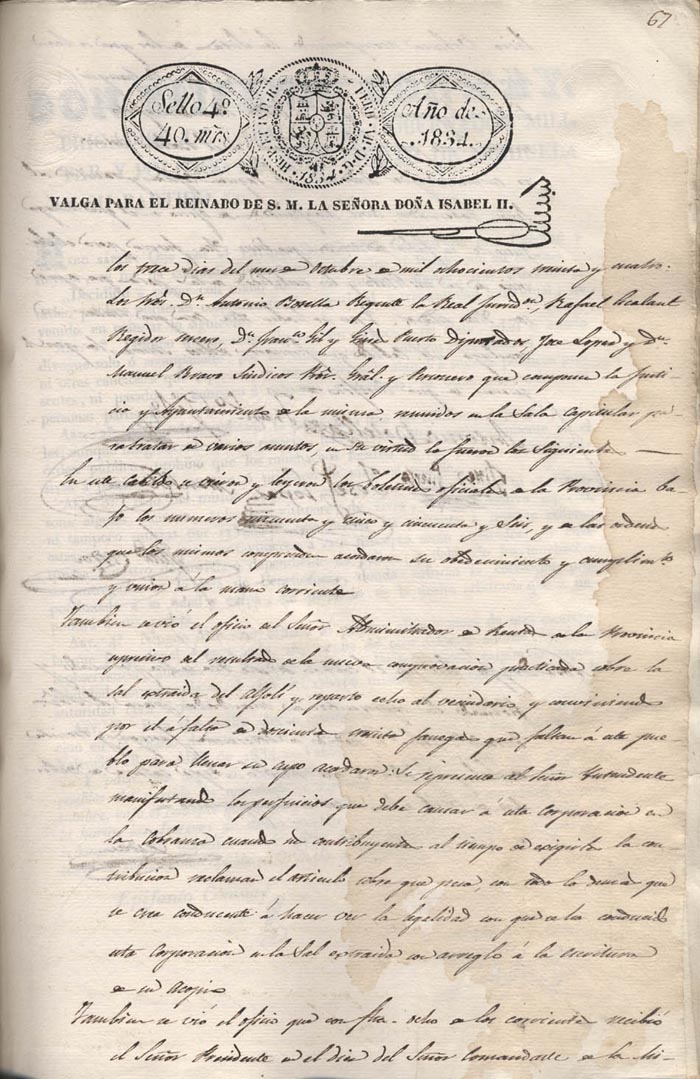 67
Sello 4º
40. mrs
HISP. ET IND. R.
FERD. VII. D. G.
1834
Año de
1834.
VALGA PARA EL REINADO DE S. M. LA SEÑORA DOÑA ISABEL II.
los trece dias del mes de Octubre de mil ochocientos treinta y cuatro:
Los Sres. Dn. Antonio Botella Regente la Real Jurisdon., Rafael Alcalant
Regidor tercero, Dn. Franco. Gil y Ginés Puerto Diputados, Jose Lopez y Dn.
Manuel Bravo Sindicos Pror. Gral. y Personero que componen la Justi-
cia y Ayuntamiento de la misma reunidos en la Sala Capitular pa-
ra tratar de varios asuntos, en su virtud lo fueron los siguientes
En este cabildo se vieron y leyeron los boletines oficiales de la Provincia ba-
jo los numeros cincuenta y cinco y cincuenta y seis, y de las ordenes
que los mismos comprenden acordaron su obedecimiento y cumplimto.
y unirse á la mano corriente
Tambien se vió el oficio del Señor Administrador de Rentas de la Provincia
espresivo del resultado de la nueva comprovacion practicada sobre la
sal extraida del Alfolí y reparto echo al vecindario, y conviniendo
por el la falta de doscientas treinta fanegas que faltan á este pue-
blo para llenar su cupo acordaron: Se represente al Señor Yntendente
manifestando los perjuicios que debe causar á esta corporacion en
la cobranza cuando los contribuyentes al tiempo de exigirles la con-
tribucion reclamen el articulo sobre que pesa, con todo lo demas que
se crea conducente á hacer ver la legalidad con que se ha conducido
esta corporacion en la Sal extraida con arreglo á la escritura
de su acopio
Tambien se vió el oficio que con fha. ocho de los corrientes recibió
el Señor Presidente en el dia del Señor Comandante de la Mi-